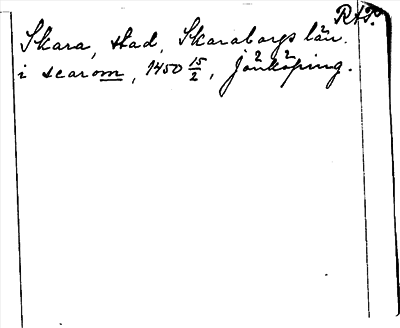 RAP.
Skara, stad, Skaraborgs län.
i scarom, 1450 15/2, Jönköping.